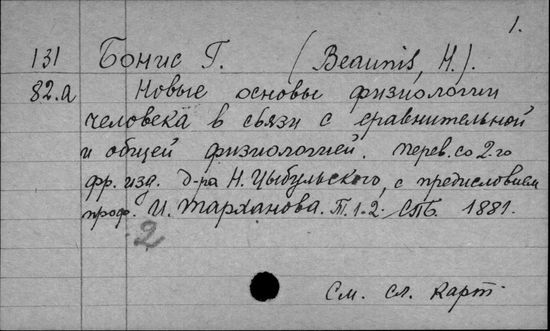 1.
131 Бонис Г. (Beaunis, H.).
82.а Новые основы физиологии
человека в связи с сравнительной
и общей физиологией. Перев. со 2.го
фр. изд. Д-ра Н. Цыбульского, с предисловием
проф. И. Тарханова. Т. 1-2. СПБ. 1881.
2
См. сл. карт.